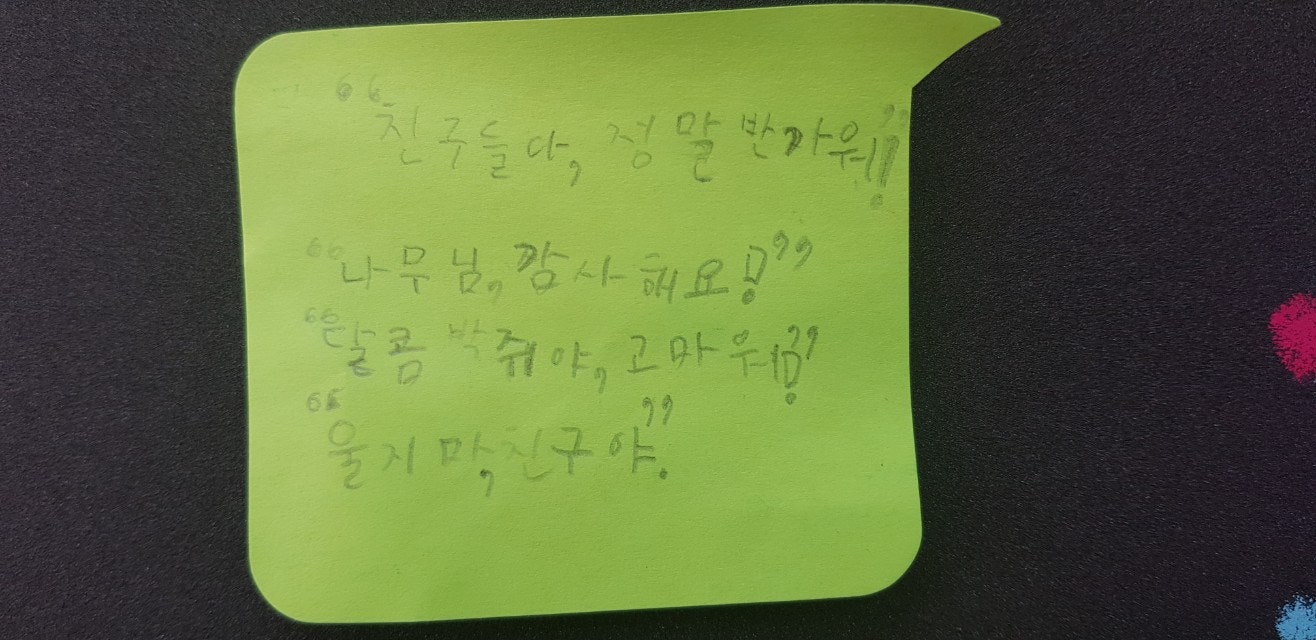 “친구들아, 정말 반가워!”
“나무님, 감사해요!”
“달콤 박쥐야, 고마워!”
“울지 마, 친구야.”